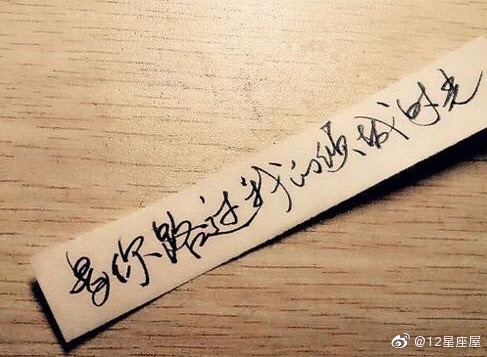 是你路过我的倾城时光
@12星座屋